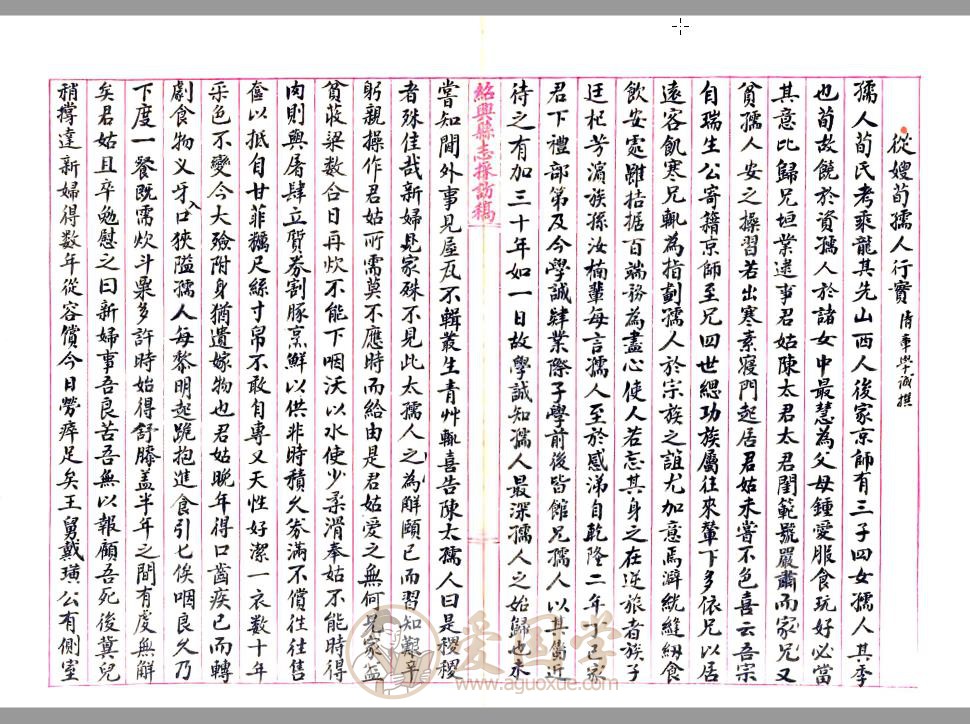 從嫂荀孺人行實 清章學誠撰
孺人荀氏考乘龍其先山西人後家京師有三子四女孺人其季
也荀故饒於資孺人於諸女中最慧為父母鍾愛服食玩好必當
其意比歸兄垣業逮事君姑陳太君太君閨範號嚴肅而家兄又
貧孺人安之操習若出寒素寢門起居君姑未嘗不色喜云吾宗
自瑞生公寄籍京師至兄四世緦功族屬往來輦下多依兄以居
遠客飢寒兄輒為指劃孺人於宗族之誼尤加意焉澣統縫紉食
飲安處雖拮据百端務為盡心使人若忘其身之在逆旅者族子
廷杞芳湄族孫汝楠輩每言孺人至於感涕自乾隆二年丁巳家
君下禮部第及今學誠肄業際子學前後皆館兄孺人以其舊近
待之有加三十年如一日故學誠知孺人最深孺人之始歸也未
紹興縣志採訪稿
嘗知閫外事見屋瓦不輯叢生青艸輒喜告陳太孺人曰是稷稷
者殊佳哉新婦見家殊不見此太孺人之為解頤已而習知艱辛
躬親操作君姑所需莫不應時而給由是君姑愛之無何兄家益
貧菽粱数合日再炊不能下咽沃以水使少柔滑奉姑不能時得
肉則與屠肆立質券割豚烹鮮以供非時積久券滿不償往往售
奩以抵自甘菲糲尺絲寸帛不敢自專又天性好潔一衣数十年
采色不變今大殮附身猶遺嫁物也君姑晚年得口齒疾已而轉
劇食物乂牙入口狹隘孺人每黎明起跪抱進食引七俟咽良久乃
下度一餐既需炊斗粟多許時始得舒膝盖半年之間有虔無觧
矣君姑且卒勉慰之曰新婦事吾良苦吾無以報顧吾死後冀兒
稍撐達新婦得数年從容償今日勞瘁足矣王舅戴璜公有側室
爱国学
www.aguoxue.com